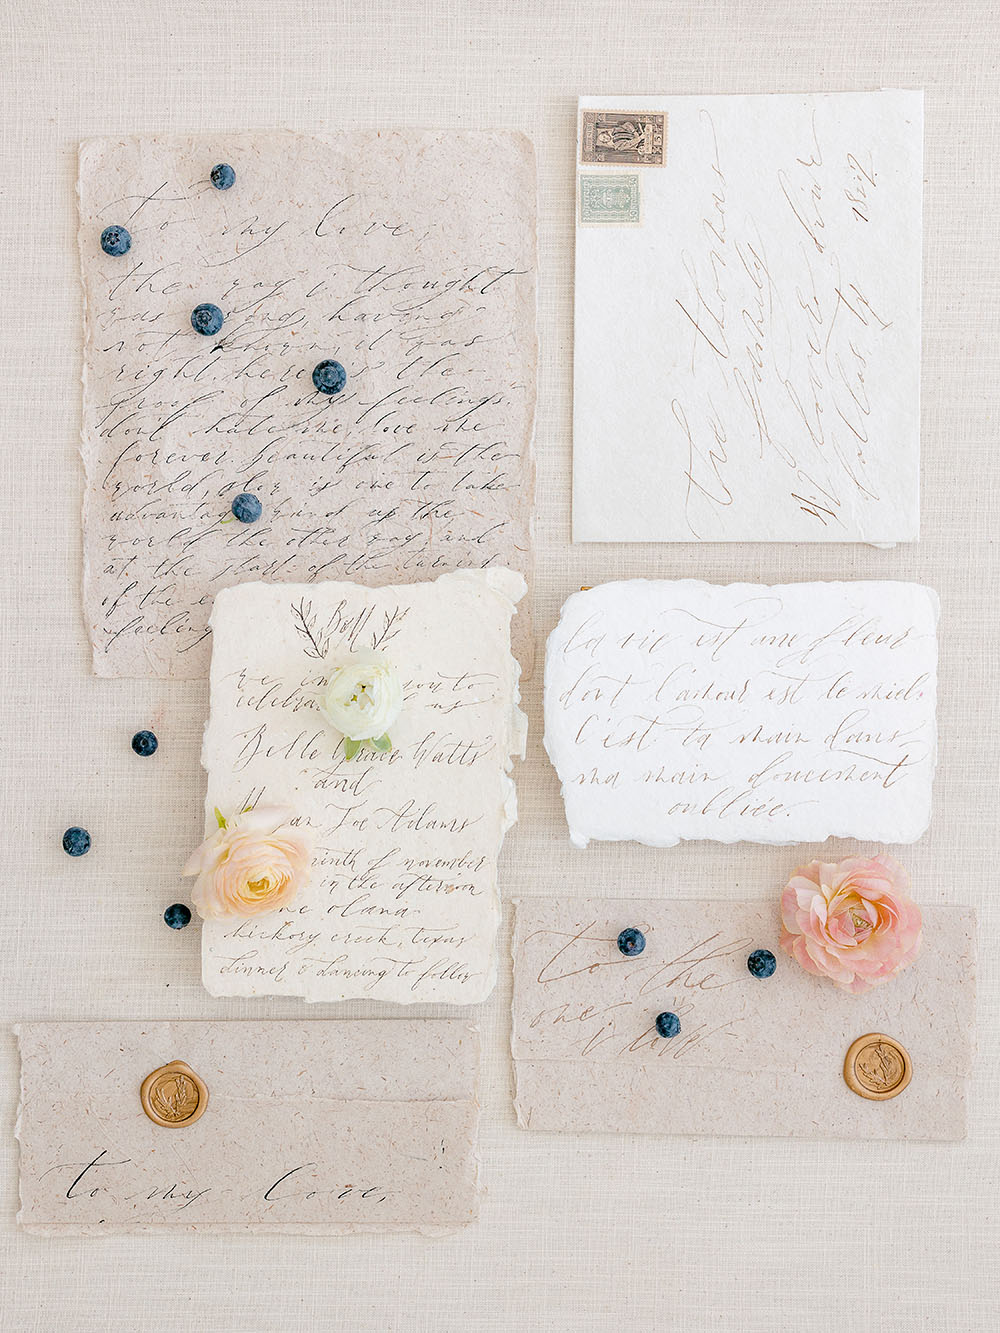 to my love,
the way i thought
was wrong, having
not known, it was
right. here is the
proof of my feelings.
don't hate me, love me
forever. beautiful is the
world, is one to take
advantage wind up the
world the other way and
at the start of the turning
of the
feeling
the thomas
family
dallas, tx
1827
B&H
we you to
us
Belle Grace Watts
and
Joe Adams
ninth of november
in the afternoon
olana
hickory creek, texas
dinner & dancing to follow
la vie est une fleur
dont l'amour est le miel.
c'est ta main dans
ma main doucement
oubliée.
to the
one
i love
to my love,